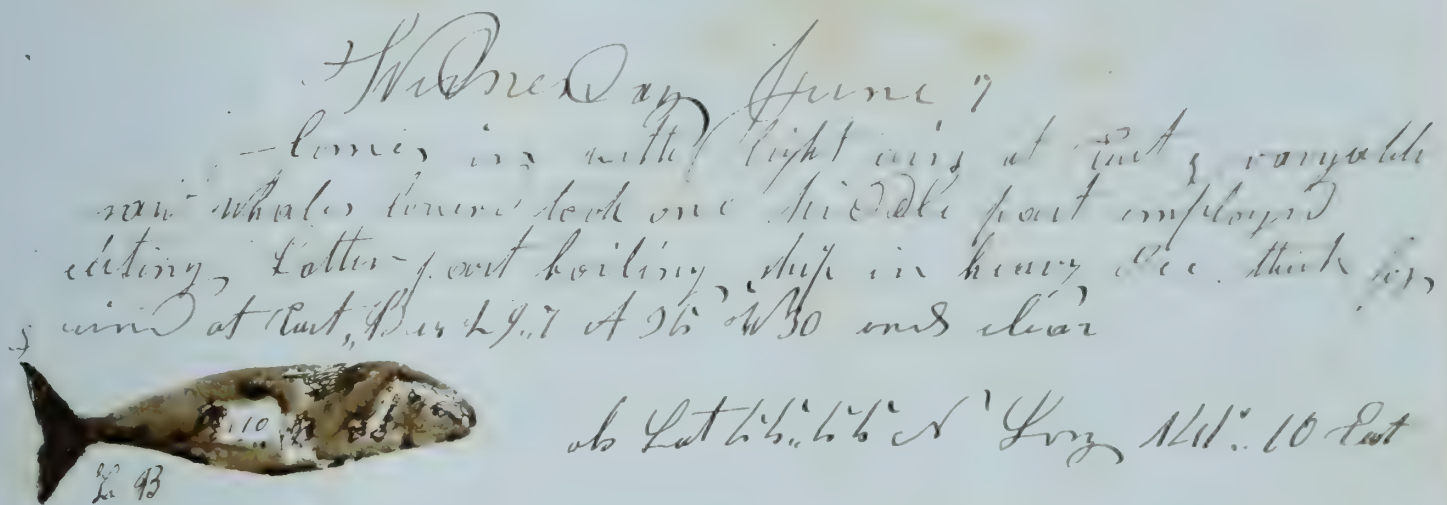 Wednesday June 7
Comes in with light airs at East & varyable
saw whales lowerd took one Middle part employed
cuting, Latter part boiling, ship in heavy Ice thick fog
wind at East, ends clear
110
L B
ob Lat N Long 10 East